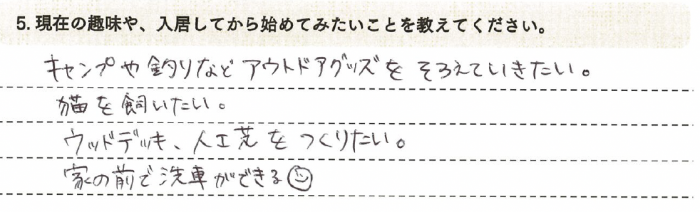 5. 現在の趣味や、入居してから始めてみたいことを教えてください。
キャンプや釣りなどアウトドアグッズをそろえていきたい。
猫を飼いたい。
ウッドデッキ、人工芝をつくりたい。
家の前で洗車ができる☺